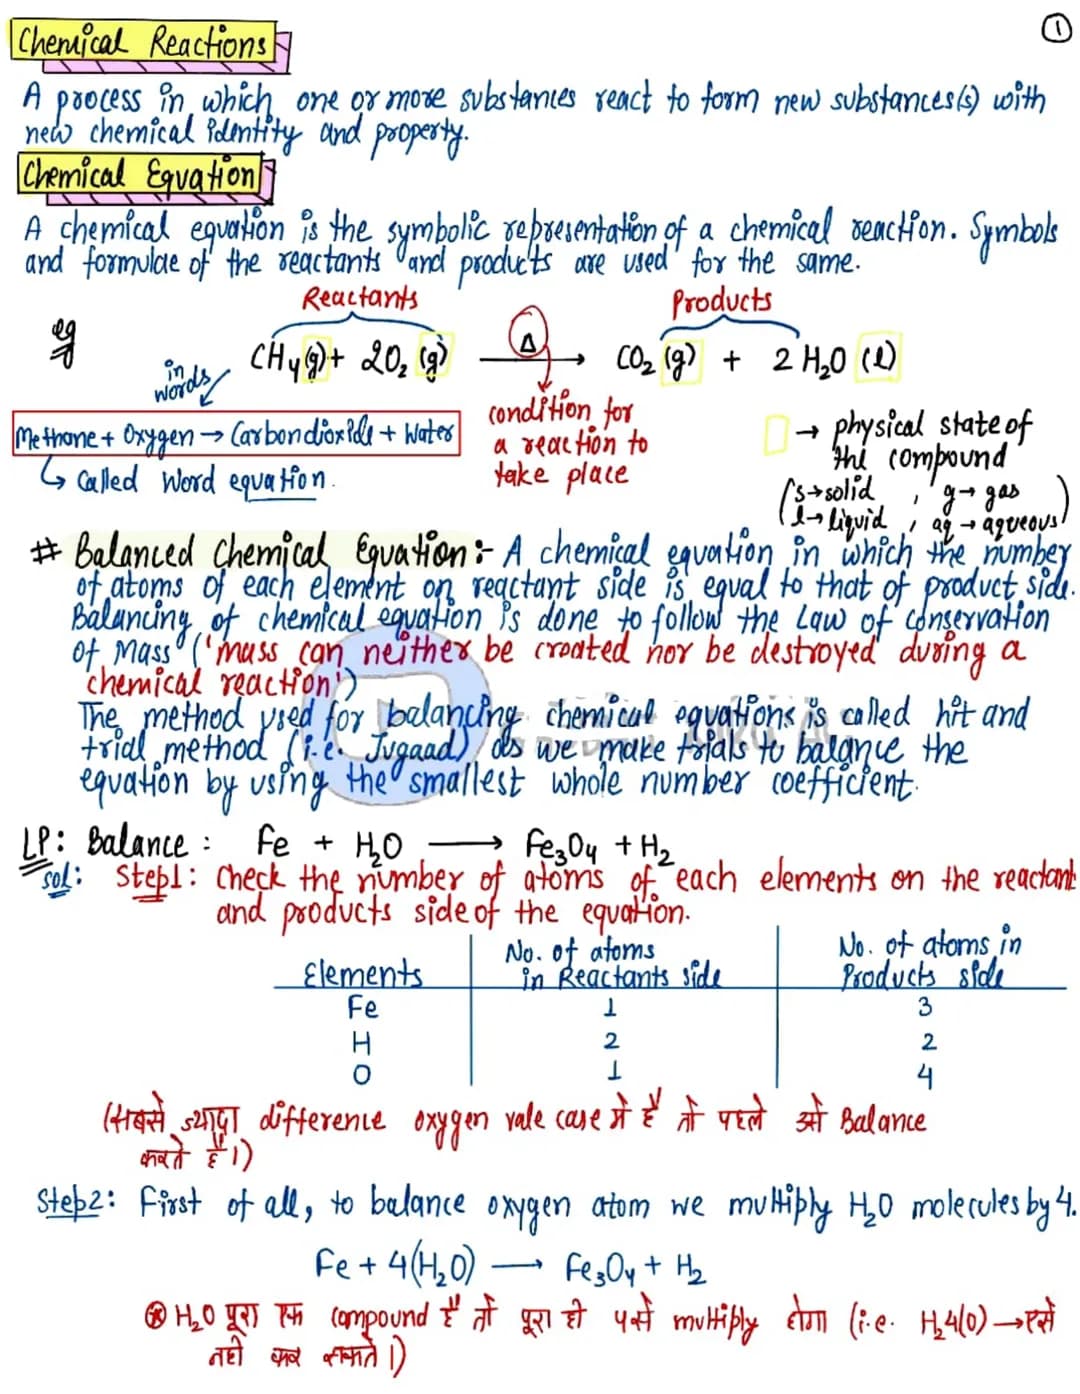 1
Chemical Reactions
A process in which one or more substances react to form new substances(s) with
new chemical identity and property.
Chemical Equation
A chemical equation is the symbolic representation of a chemical reaction. Symbols
and formulae of the reactants and products are used for the same.
Reactants Products
eg CH4(g) + 2O2 (g) —Δ→ CO2 (g) + 2 H2O (l)
in words
Methane + Oxygen → Carbondioxide + Water
↳ Called Word equation.
condition for
a reaction to
take place
→ physical state of
the compound
(s→solid , g→ gas
l→liquid , aq → aqueous)
# Balanced Chemical Equation :- A chemical equation in which the number
of atoms of each element on reactant side is equal to that of product side.
Balancing of chemical equation is done to follow the Law of Conservation
of Mass ('mass can neither be created nor be destroyed during a
chemical reaction')
The method used for balancing chemical equations is called hit and
trial method (i.e. Jugaad) as we make trials to balance the
equation by using the smallest whole number coefficient.
LP: Balance : Fe + H2O → Fe3O4 + H2
Sol: Step1: Check the number of atoms of each elements on the reactant
and products side of the equation.
Elements No. of atoms in Reactants side No. of atoms in Products side
Fe 1 3
H 2 2
O 1 4
(सबसे ज्यादा difference oxygen vale case मे हैं तो पहले उसे Balance
करते हैं।)
Step2: First of all, to balance oxygen atom we multiply H2O molecules by 4.
Fe + 4(H2O) → Fe3O4 + H2
⊛ H2O पूरा एक compound हैं तो पूरा ही multiply होगा (i.e. H24(O) → ऐसे
नही कर सकते।)